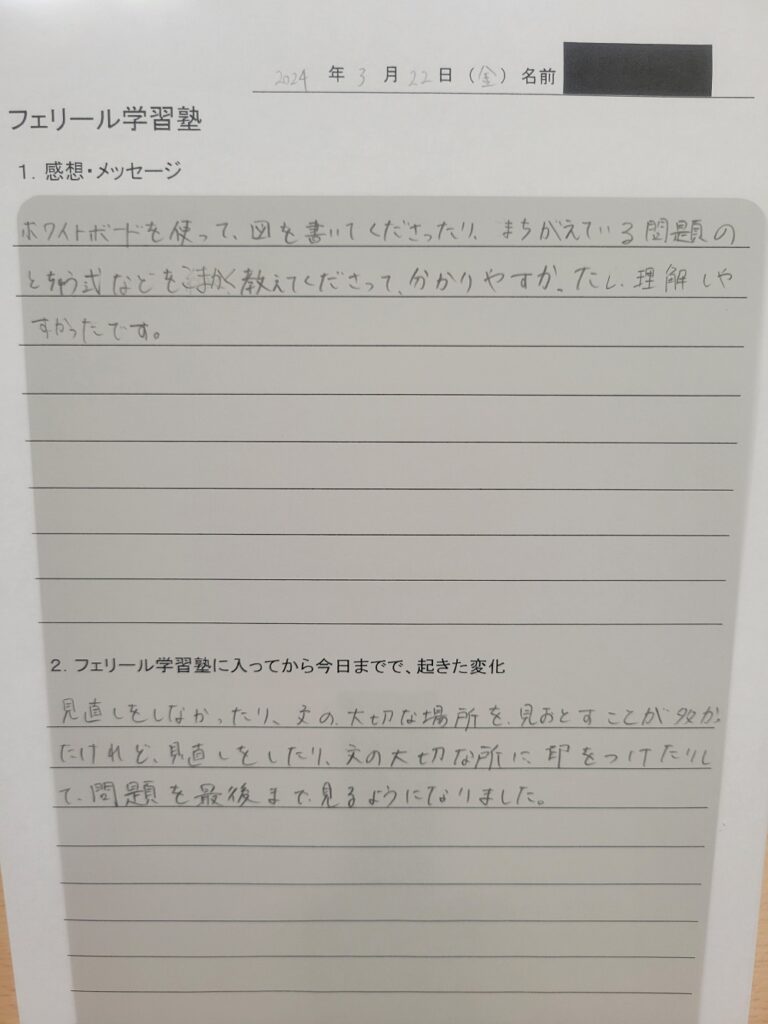 2024 年 3 月 22 日（金）名前
フェリール学習塾
1. 感想・メッセージ
ホワイトボードを使って、図を書いてくださったり、まちがえている問題の
とちゅう式などを細かく教えてくださって、分かりやすかったし、理解しや
すかったです。
2. フェリール学習塾に入ってから今日までで、起きた変化
見直しをしなかったり、文の大切な場所を見おとすことが多かっ
たけれど、見直しをしたり、文の大切な所に印をつけたりし
て、問題を最後まで見るようになりました。